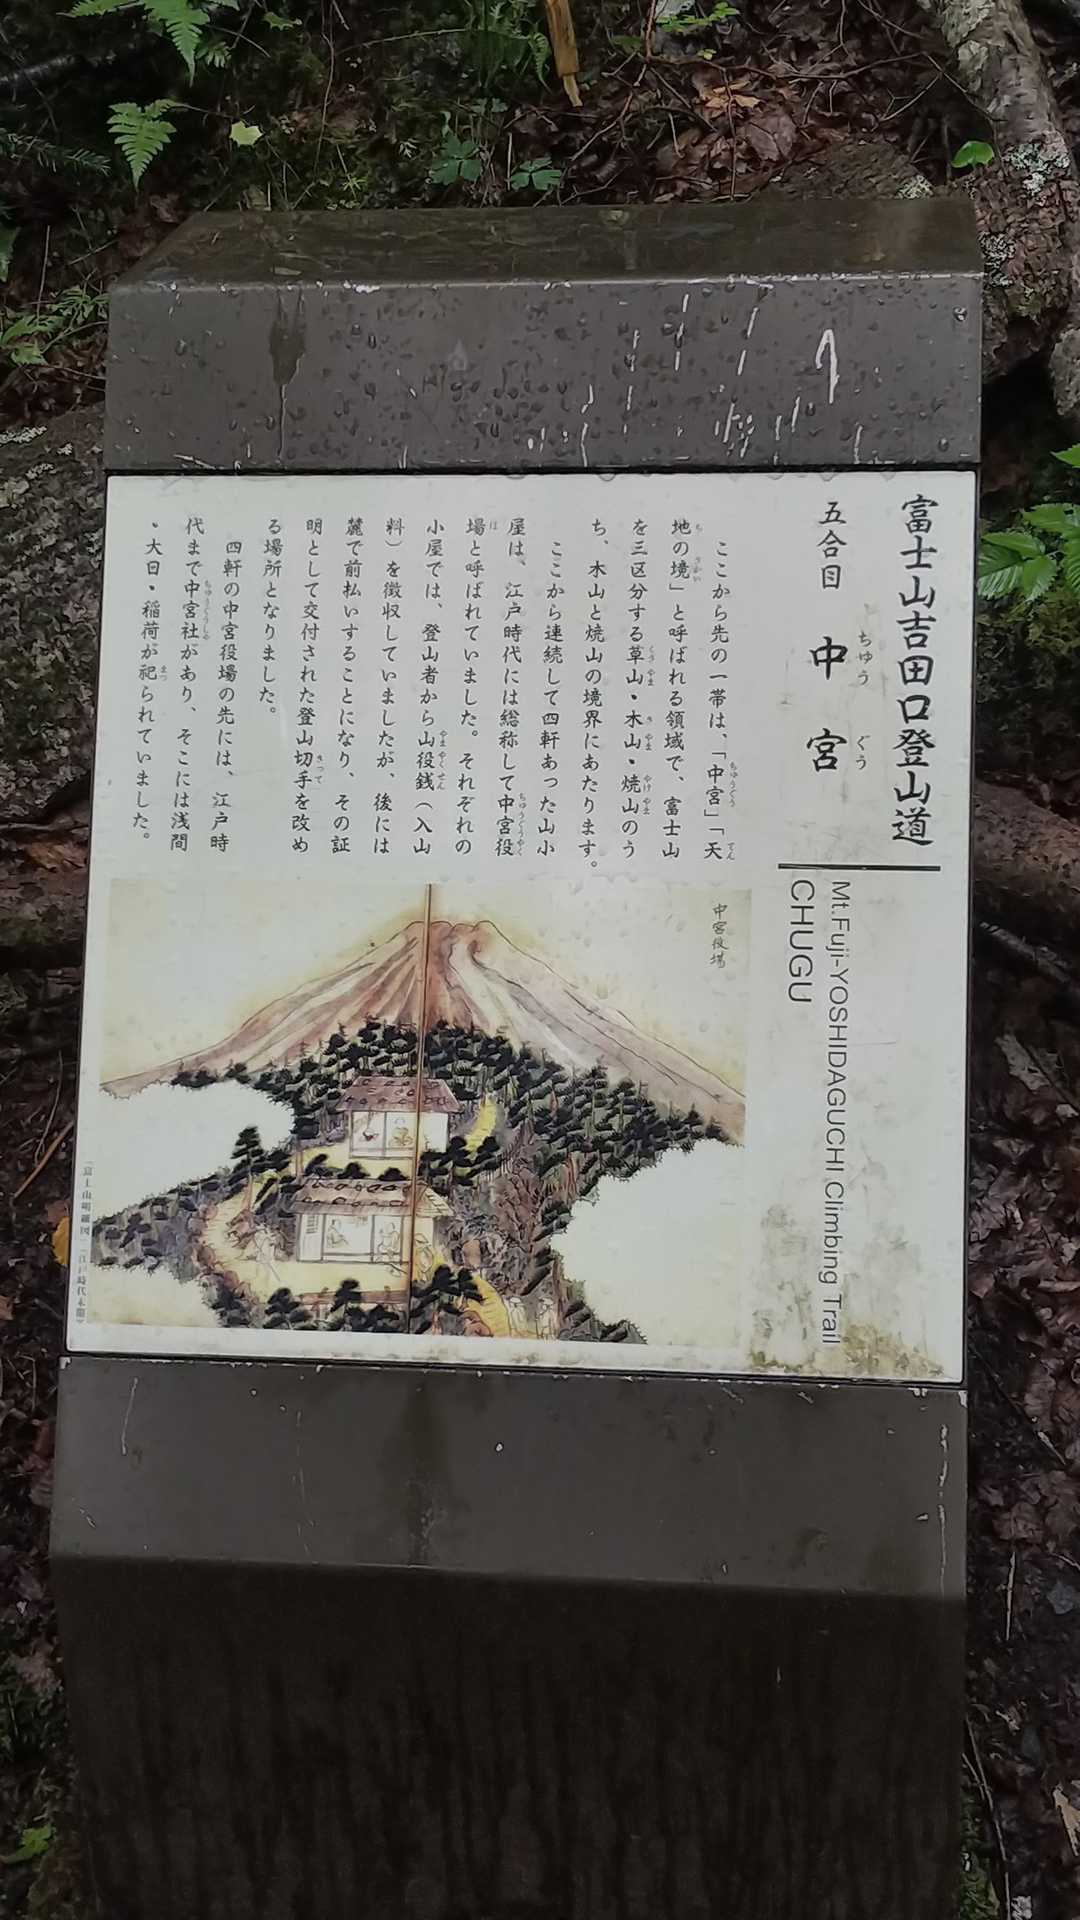 富士山吉田口登山道
五合目 中宮
ちゅう ぐう
Mt.Fuji-YOSHIDAGUCHI Climbing Trail
CHUGU
ここから先の一帯は、「中宮」「天
ちゅうぐう てん
地の境」と呼ばれる領域で、富士山
ち さかい
を三区分する草山・木山・焼山のう
くさやま きやま やけやま
ち、木山と焼山の境界にあたります。
ここから連続して四軒あった山小
屋は、江戸時代には総称して中宮役
ちゅうぐうやく
場と呼ばれていました。それぞれの
ば
小屋では、登山者から山役銭(入山
やまやくせん
料)を徴収していましたが、後には
麓で前払いすることになり、その証
明として交付された登山切手を改め
きって
る場所となりました。
四軒の中宮役場の先には、江戸時
代まで中宮社があり、そこには浅間
ちゅうぐうしゃ
・大日・稲荷が祀られていました。
まつ
中宮役場
「富士山明細図」(江戸時代末期)